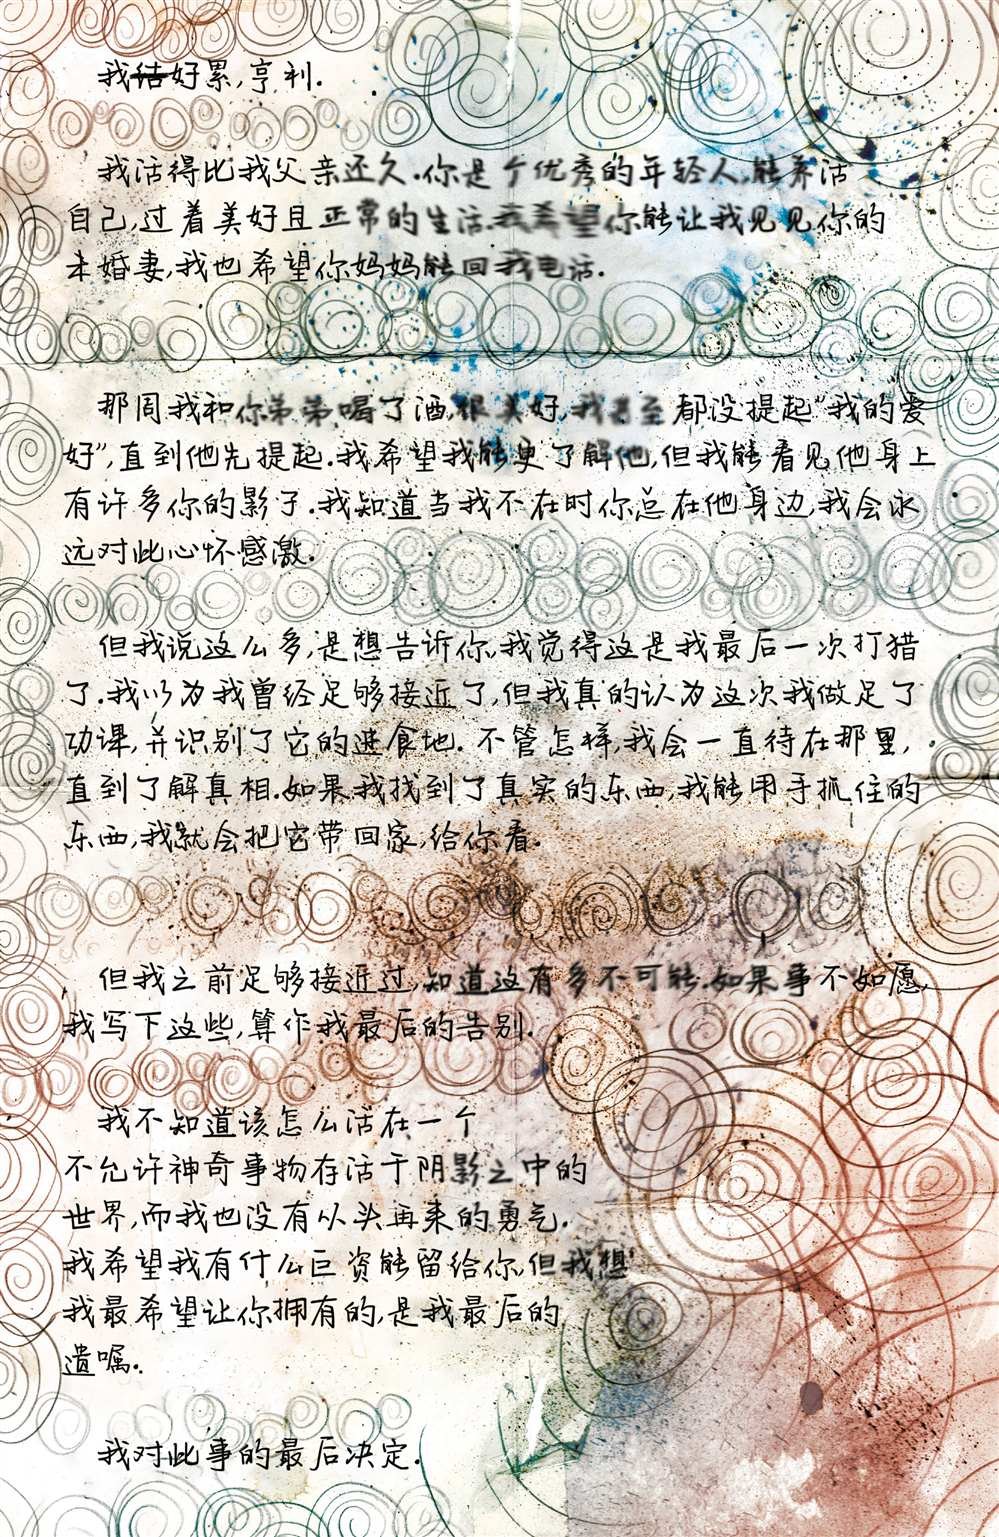 我结好累,亨利.
我活得比我父亲还久.你是个优秀的年轻人,能养活
自己,过着美好且正常的生活.我希望你能让我见见你的
未婚妻,我也希望你妈妈能回我电话.
那周我和你弟弟喝了酒,很美好,我甚至都没提起“我的爱
好”,直到他先提起.我希望我能更了解他,但我能看见他身上
有许多你的影子.我知道当我不在时你总在他身边,我会永
远对此心怀感激.
但我说这么多,是想告诉你,我觉得这是我最后一次打猎
了.我以为我曾经足够接近了,但我真的认为这次我做足了
功课,并识别了它的进食地.不管怎样,我会一直待在那里,
直到了解真相.如果我找到了真实的东西,我能用手抓住的
东西,我就会把它带回家,给你看.
但我之前足够接近过,知道这有多不可能.如果事不如愿,
我写下这些,算作我最后的告别.
我不知道该怎么活在一个
不允许神奇事物存活于阴影之中的
世界,而我也没有从头再来的勇气.
我希望我有什么巨资能留给你,但我想
我最希望让你拥有的,是我最后的
遗嘱.
我对此事的最后决定.